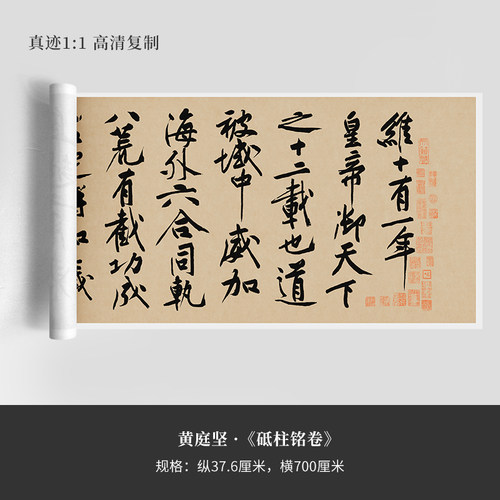 真迹1:1 高清复制
維十有一年
皇帝御天下
之十二載也道
被域中威加
海外六合同軌
八荒有截功成
黄庭坚·《砥柱铭卷》
规格：纵37.6厘米，横700厘米